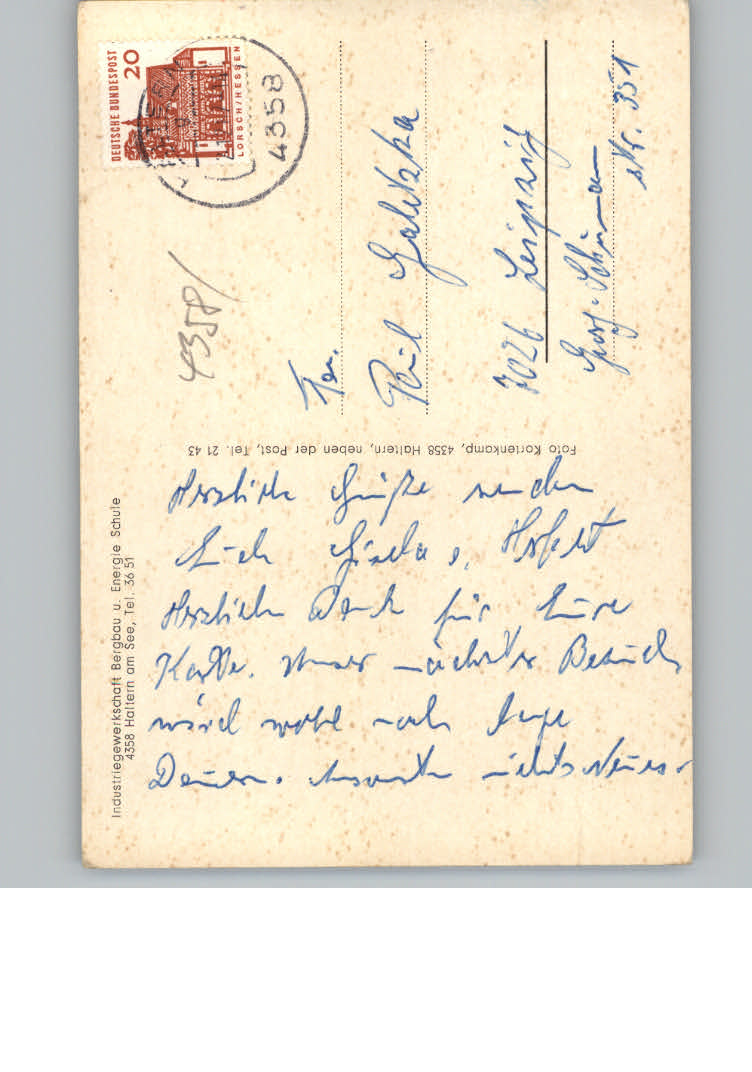 Industriegewerkschaft Bergbau u. Energie Schule
4358 Haltern am See, Tel. 36 51
Herzliche Grüße senden
Euch Gisela u. Herbert
Herzlichen Dank für Eure
Karte. Unser nächster Besuch
wird wohl noch lange
Dauern. Ansonsten nichts Neues.
Foto Kortenkamp, 4358 Haltern, neben der Post, Tel. 21 43
DEUTSCHE BUNDESPOST
20
LORSCH/HESSEN
4358
4358/
Fam.
Paul Galetzka
7026 Leipzig
Georg-Schumann
Str. 351